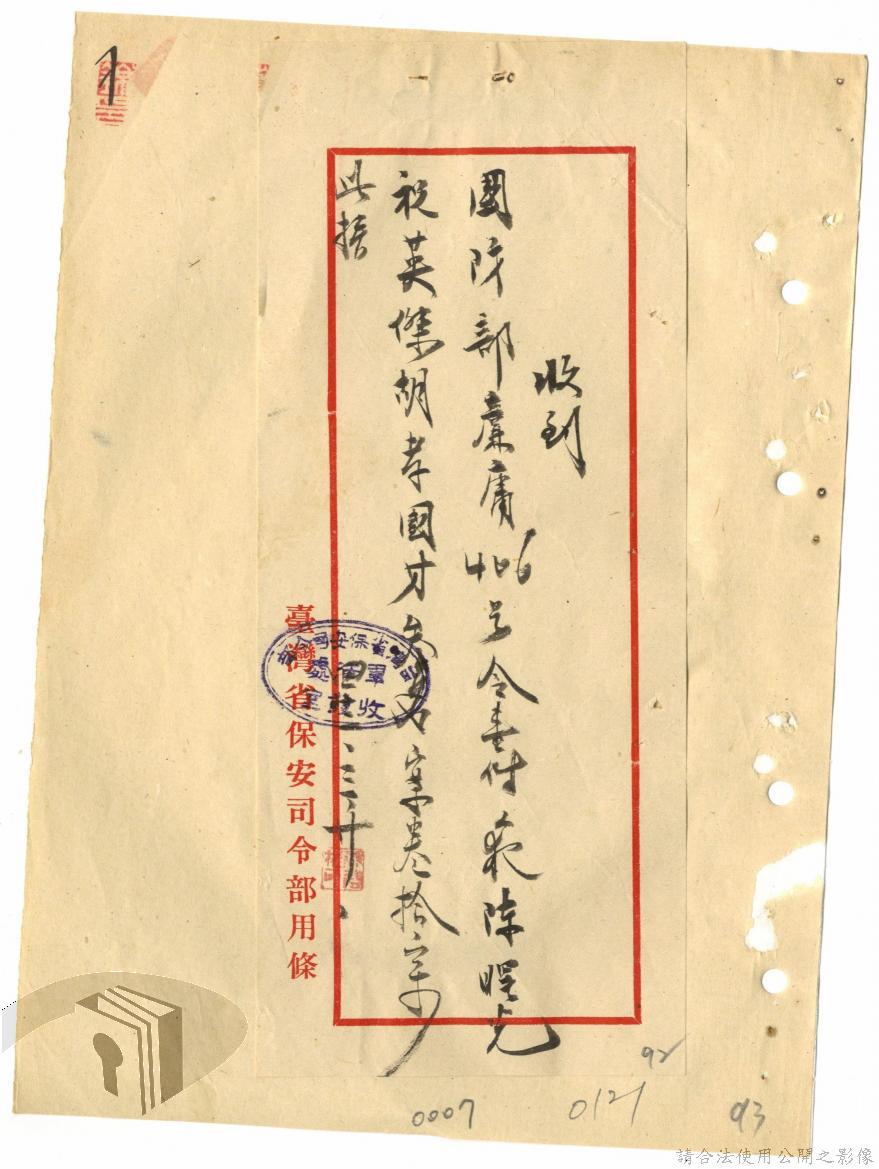 收到
國防部廉庸406号令壹件於陳明光
祝英傑胡孝國才
案卷拾
此據
三、十、
臺灣省保安司令部用條
臺灣省保安司令部
軍法處
收發室
0007
0121
92
93
請合法使用公開之影像